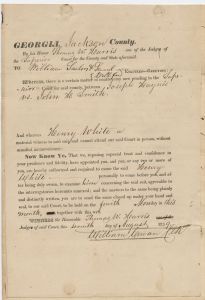 GEORGIA, Jackson County.
By his Honor Thomas W. Harris one of the Judges of the
Superior Court for the County and State aforesaid.
TO William
ESQUIRES—GREETING:
WHEREAS, there is a certain matter of controversy now pending in the Supe-
rior Court for said county, between Joseph Haynie
vs John H. Smith
And whereas Henry White a
material witness in said suit and cannot attend our said Court in person, without
manifest inconvenience:
Now Know Ye, That we, reposing especial trust and confidence in
your prudence and fidelity, have appointed you, and you, or any two or more of
you, are hereby authorized and required to cause the said Henry
White personally to come before you, and af-
ter being duly sworn, to examine him concerning the said suit, agreeable to
the interrogatories hereunto annexed; and the answers to the same being plainly
and distinctly written, you are to send the same closed up under your hands and
seals, to our said Court, to be held on the fourth Monday in this
month, together with this writ.
WITNESS the Honorable Thomas W. Harris one of the
Judges of said Court, this day of August
William Cowan Clk